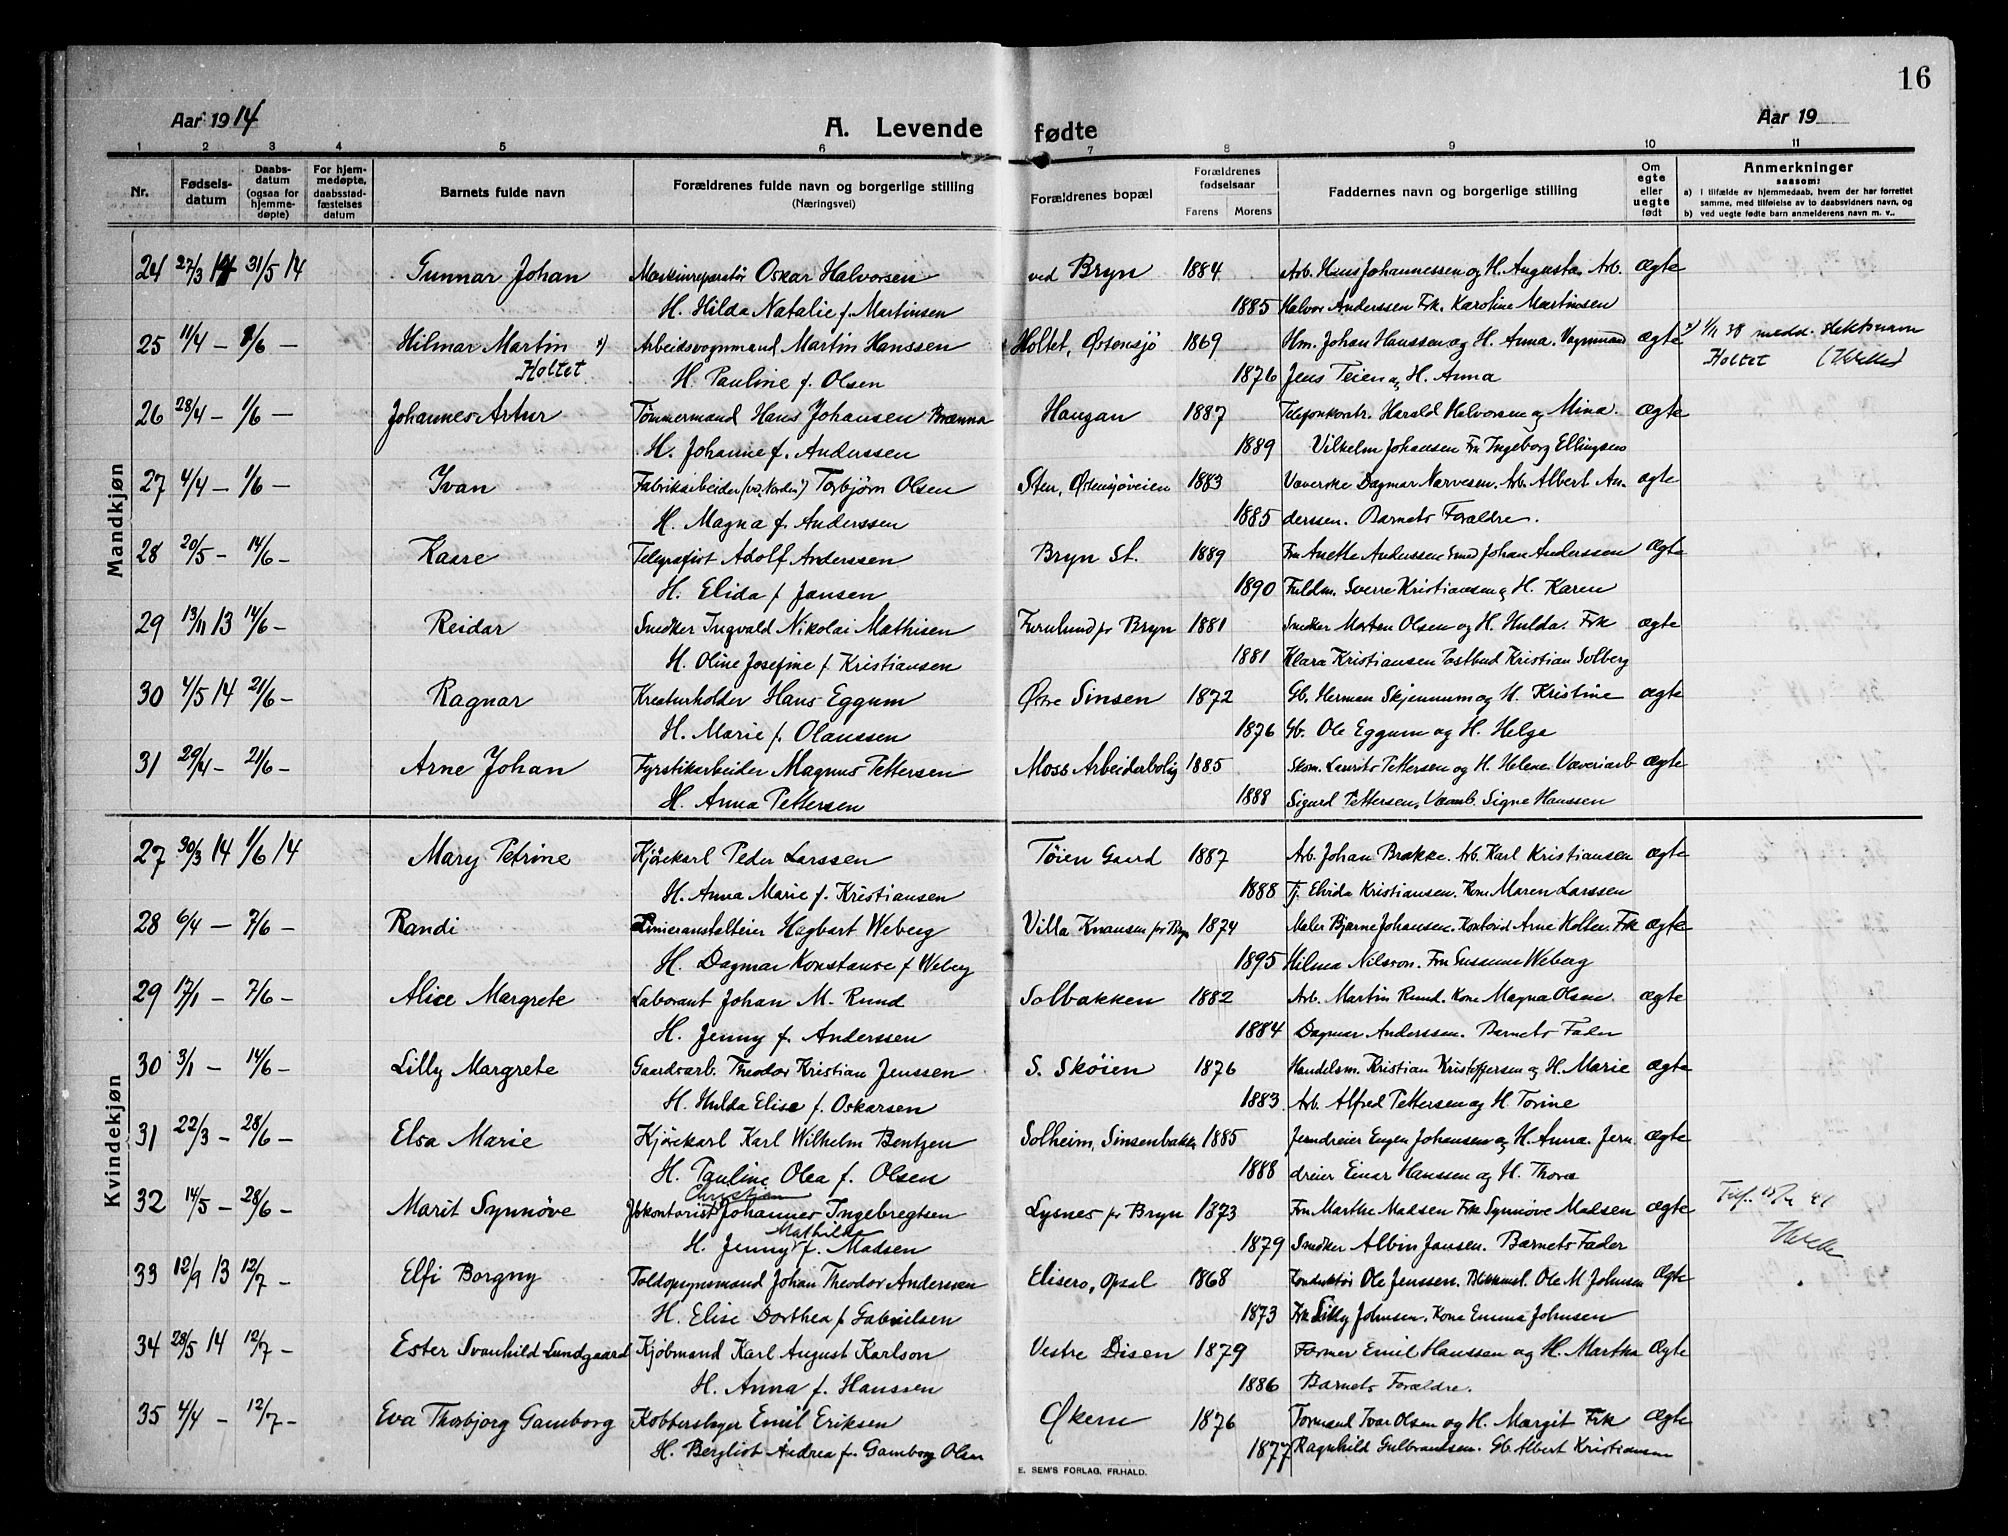 16
Aar 1914
A. Levende fødte
Aar 19
1 2 3 4 5 6 7 8 9 10 11
Nr.
Fødsels-
datum
Daabs-
datum
(ogsaa for
hjemme-
døpte)
For hjem-
medøpte,
daabsstad-
fæstelses
datum
Barnets fulde navn
Forældrenes fulde navn og borgerlige stilling
(Næringsvei)
Forældrenes bopæl
Forældrenes
fødselsaar
Farens Morens
Faddernes navn og borgerlige stilling
Om
egte
eller
uegte
født
Anmerkninger
saasom:
a) i tilfælde av hjemmedaab, hvem der har forrettet
samme, med tilføielse av to daabsvidners navn, og
b) ved uegte fødte barn anmelderens navn m. v..
Mandkjøn
24 27/3 14 31/5 14 Gunnar Johan Maskinreparatør Oskar Halvorsen ved Bryn 1884 Arb. Hans Johannessen og H. Augusta, Arb. Ægte
H. Hilda Natalie f. Martinsen 1885 Halvor Anderssen Frk. Karoline Martinsen
25 11/4 — 1/6 — Hilmar Martin Arbeidsvognmand Martin Hanssen Holtet, Østensjø 1869 Hm. Johan Hanssen og H. Anna. Vognmand ægte 1/11 38 medd. slektsnavn
Holtet H. Pauline f. Olsen 1876 Jens Teien og H. Anna Holtet
26 28/4 — 1/6 — Johannes Artur Tømmermand Hans Johansen Brænna Haugan 1887 Telefonkontr. Harald Halvorsen og Mina. Ægte
H. Johanne f. Anderssen 1889 Vilhelm Johansen Fru Ingeborg Ellingsen
27 4/4 — 1/6 — Ivan Fabrikarbeider Torbjørn Olsen Sten, Østensjøveien 1883 Væverske Dagmar Narvesen. Arb. Albert An- ægte
H. Magna f. Anderssen 1885 derssen. Barnets Forældre.
28 20/5 — 14/6 — Kaare Telegrafist Adolf Anderssen Bryn St. 1889 Fru Anette Anderssen Smed Johan Anderssen Ægte
H. Elida f. Jansen 1890 Fuldm. Sverre Kristiansen og H. Karen
29 13/11 13 14/6 — Reidar Snedker Ingvald Nikolai Mathisen Furulund pr Bryn 1881 Snedker Morten Olsen og H. Hulda. Frk Ægte
H. Oline Josefine f. Kristiansen 1881 Klara Kristiansen Postbud Kristian Solberg
30 4/5 14 21/6 — Ragnar Kreaturholder Hans Eggum Østre Sinsen 1872 Gb. Herman Skjennum og H. Kristine ægte
H. Marie f. Olaussen 1876 Gb. Ole Eggum og H. Helga
31 29/4 — 21/6 — Arne Johan Fyrstikarbeider Magnus Pettersen Moss Arbeiderbolig 1885 Skom. Laurits Pettersen og H. Helene. Væveriarb Ægte
H. Anna Pettersen 1888 Sigurd Pettersen, Væverb. Signe Hanssen
Kvindekjøn
27 30/3 14 1/6 14 Mary Petrine Kjørekarl Peder Larssen Tøien Gaard 1887 Arb. Johan Brække. Arb. Karl Kristiansen Ægte
H. Anna Marie f. Kristiansen 1888 Tj. Elvida Kristiansen. Kone Maren Larssen
28 6/4 — 7/6 — Randi Linieranstalteier Hagbart Weberg Villa Knausen pr Bryn 1874 Maler Bjarne Johansen. Kontorist Arne Holten. Frk Ægte
H. Dagmar Konstanse f Weberg 1895 Hilma Nilsson. Fru Susanna Weberg
29 17/1 — 7/6 — Alice Margrete Laborant Johan M. Rund Solbakken 1882 Arb. Martin Rund. Kone Magna Olsen. ægte
H. Jenny f. Anderssen 1884 Dagmar Anderssen. Barnets Fader
30 3/1 — 14/6 — Lilly Margrete Gaardsarb. Theodor Kristian Jenssen S. Skøien 1876 Handelsm. Kristian Kristoffersen og H. Marie ægte
H. Hulda Elise f. Oskarsen 1883 Arb. Alfred Pettersen og H. Torine
31 22/3 — 28/6 — Elsa Marie Kjørekarl Karl Wilhelm Bentzen Solheim, Sinsenbakk. 1885 Jerndreier Eugen Johansen og H. Anna. Jern- ægte
H. Pauline Olea f. Olsen 1888 dreier Einar Hanssen og H. Thora
Christian
32 14/5 — 28/6 — Marit Synnøve Jbkontorist Johannes Ingebregtsen Lysnes pr Bryn 1873 Fru Marthe Madsen Frk Synnøve Madsen ægte
Mathilde
H. Jenny f. Madsen 1879 Snedker Albin Jansen. Barnets Fader
33 12/9 13 12/7 — Elfi Borgny Toldopsynsmand Johan Theodor Anderssen Elisero, Opsal 1868 Konduktør Ole Jenssen. Blikkensl. Ole M Johnsen Ægte
H. Elise Dorthea f Gabrielsen 1873 Frk Lilly Johnsen. Kone Emma Johnsen
34 28/5 14 12/7 — Ester Svanhild Lundgaard Kjøbmand Karl August Karlson Vestre Disen 1879 Former Emil Hanssen og H. Martha Ægte
H. Anna f. Hanssen 1886 Barnets Forældre.
35 4/4 — 12/7 — Eva Thorbjorg Gamborg Kobberslager Emil Eriksen Økern 1876 Formand Ivar Olsen og H. Margit Frk Ægte
H. Bergliot Andrea f. Gamborg Olsen 1877 Ragnhild Gulbrandsen. Gb. Albert Kristiansen
E. SEM'S FORLAG, FR.HALD.